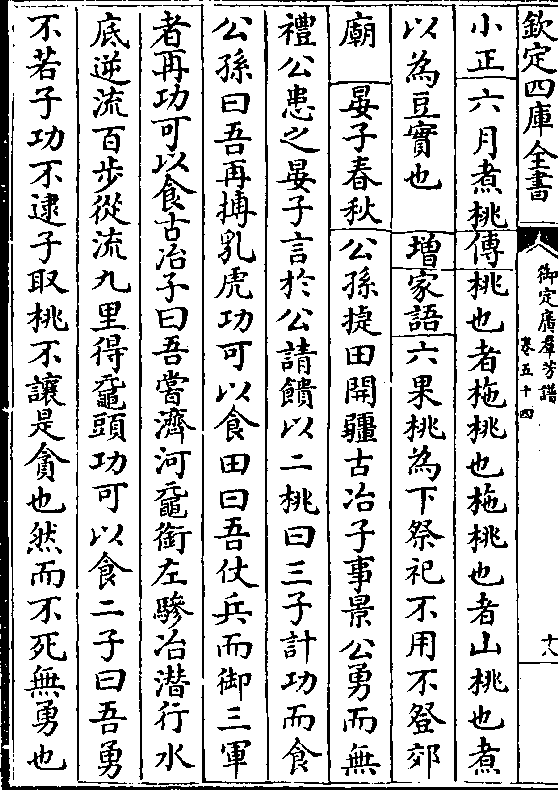 欽定四庫全書
御定廣羣芳譜
卷五十四
十八
小正六月煮桃傳桃也者杝桃也杝桃也者山桃也煮
以為豆實也 增家語六果桃為下祭祀不用不登郊
廟 晏子春秋公孫㨗田開疆古冶子事景公勇而無
禮公患之晏子言於公請饋以二桃曰三子計功而食
公孫曰吾再搏乳虎功可以食田曰吾仗兵而御三軍
者再功可以食古冶子曰吾嘗濟河黿銜左驂冶潛行水
底逆流百步從流九里得黿頭功可以食二子曰吾勇
不若子功不逮子取桃不讓是貪也然而不死無勇也